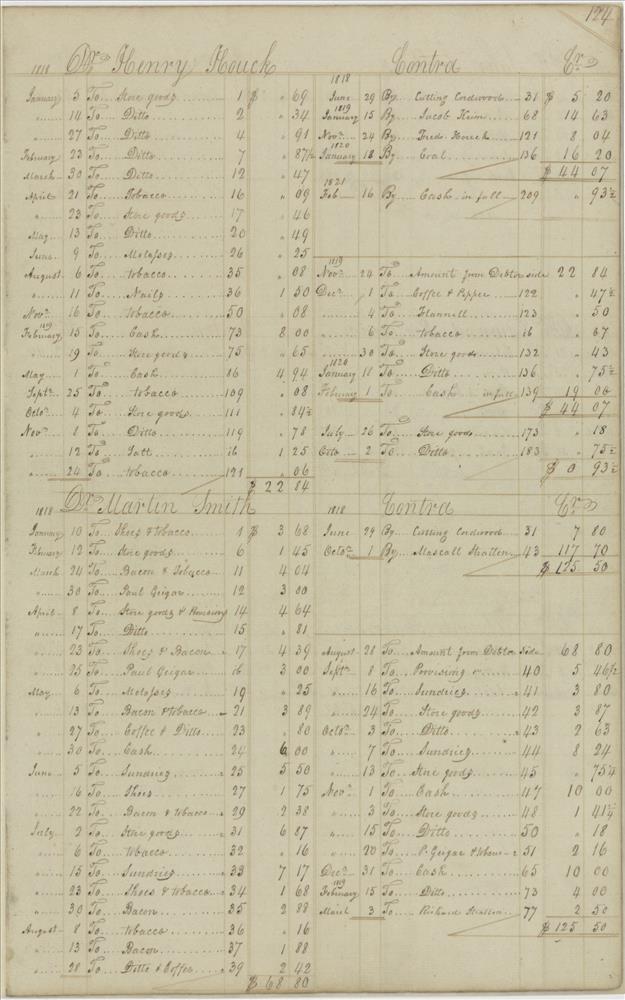 124
1818 Dr. Henry Houck
January 3 To Store goods 1 $ " 69
" 14 To Ditto 2 " 34
" 27 To Ditto 4 " 91
February 23 To Ditto 7 " 87½
March 30 To Ditto 12 " 47
April 21 To Tobacco 16 " 09
" 23 To Store goods 17 " 46
May 13 To Ditto 20 " 49
June 9 To Molasses 26 " 25
August 6 To tobacco 35 " 08
" 11 To Nails 36 1 50
Novr. 16 To tobacco 50 " 08
1819
February 15 To Cash 73 8 00
" 19 To Store goods 75 " 65
May 1 To Cash 86 4 94
Septr. 25 To tobacco 109 " 08
Octo. 4 To Store goods 111 " 84½
Novr. 8 To Ditto 119 " 78
" 12 To Salt 1 25
" 24 To tobacco 121 " 06
$ 22 84
Contra Cr.
1818
June 29 By Cutting Cordwood 31 $ 5 20
1819
January 15 By Jacob Keim 68 14 63
Novr. 24 By Fredk. Houck 121 8 04
1820
January 18 By Coal 136 16 20
$ 44 07
1821
Feb 16 By Cash in full 209 " 93½
1819
Novr. 24 To Amount from Debtor side 22 84
Decr. 1 To Coffee & Pepper 122 " 47½
" 4 To Flannell 123 " 50
" 6 To tobacco " 67
" 30 To Store goods 132 " 43
1820
January 11 To Ditto 136 " 75½
February 1 To Cash in full 139 19 00
$ 44 07
July 26 To Store goods 173 " 18
Octo 2 To Ditto 183 " 75½
$ 0 93½
1818 Dr. Martin Smith
January 10 To Shoes & tobacco 1 $ 3 68
February 12 To Store goods 6 1 45
March 24 To Bacon & Tobacco 11 4 04
" 30 To Paul Geiger 12 3 00
April 8 To Store goods & Provisions 14 4 64
" 17 To Ditto 15 " 81
" 23 To Shoes & Bacon 17 4 39
" 25 To Paul Geiger 3 00
May 6 To Molasses 19 " 25
" 13 To Bacon & tobacco 21 3 89
" 27 To Coffee & Ditto 23 " 80
" 30 To Cash 24 6 00
June 5 To Sundries 25 5 50
" 16 To Shoes 27 1 75
" 22 To Bacon & tobacco 29 2 38
July 2 To Store goods 31 6 87
" 6 To tobacco 32 " 16
" 15 To Sundries 33 7 17
" 23 To Shoes & tobacco 34 1 68
" 30 To Bacon 35 2 88
August 8 To tobacco 36 " 16
" 13 To Bacon 37 1 88
" 28 To Ditto & Coffee 39 2 42
$ 68 80
1818 Contra Cr.
June 29 By Cutting Cordwood 31 7 80
Octo. 1 By Mascall Stratten 43 117 70
$ 125 50
August 28 To Amount from Debtor side 68 80
Septr. 8 To Provisions 40 5 46½
" 16 To Sundries 41 3 80
" 24 To Store goods 42 3 87
Octo. 3 To Ditto 43 2 63
" 7 To Sundries 44 8 24
" 13 To Store goods 45 " 75¼
Novr. 1 To Cash 47 10 00
" 3 To Store goods 48 1 41¼
" 15 To Ditto 50 " 18
" 20 To P. Geiger & 51 2 16
Decr. 31 To Cash 65 10 00
1819
February 15 To Ditto 73 4 00
March 3 To Richard Stratten 77 2 50
$ 125 50